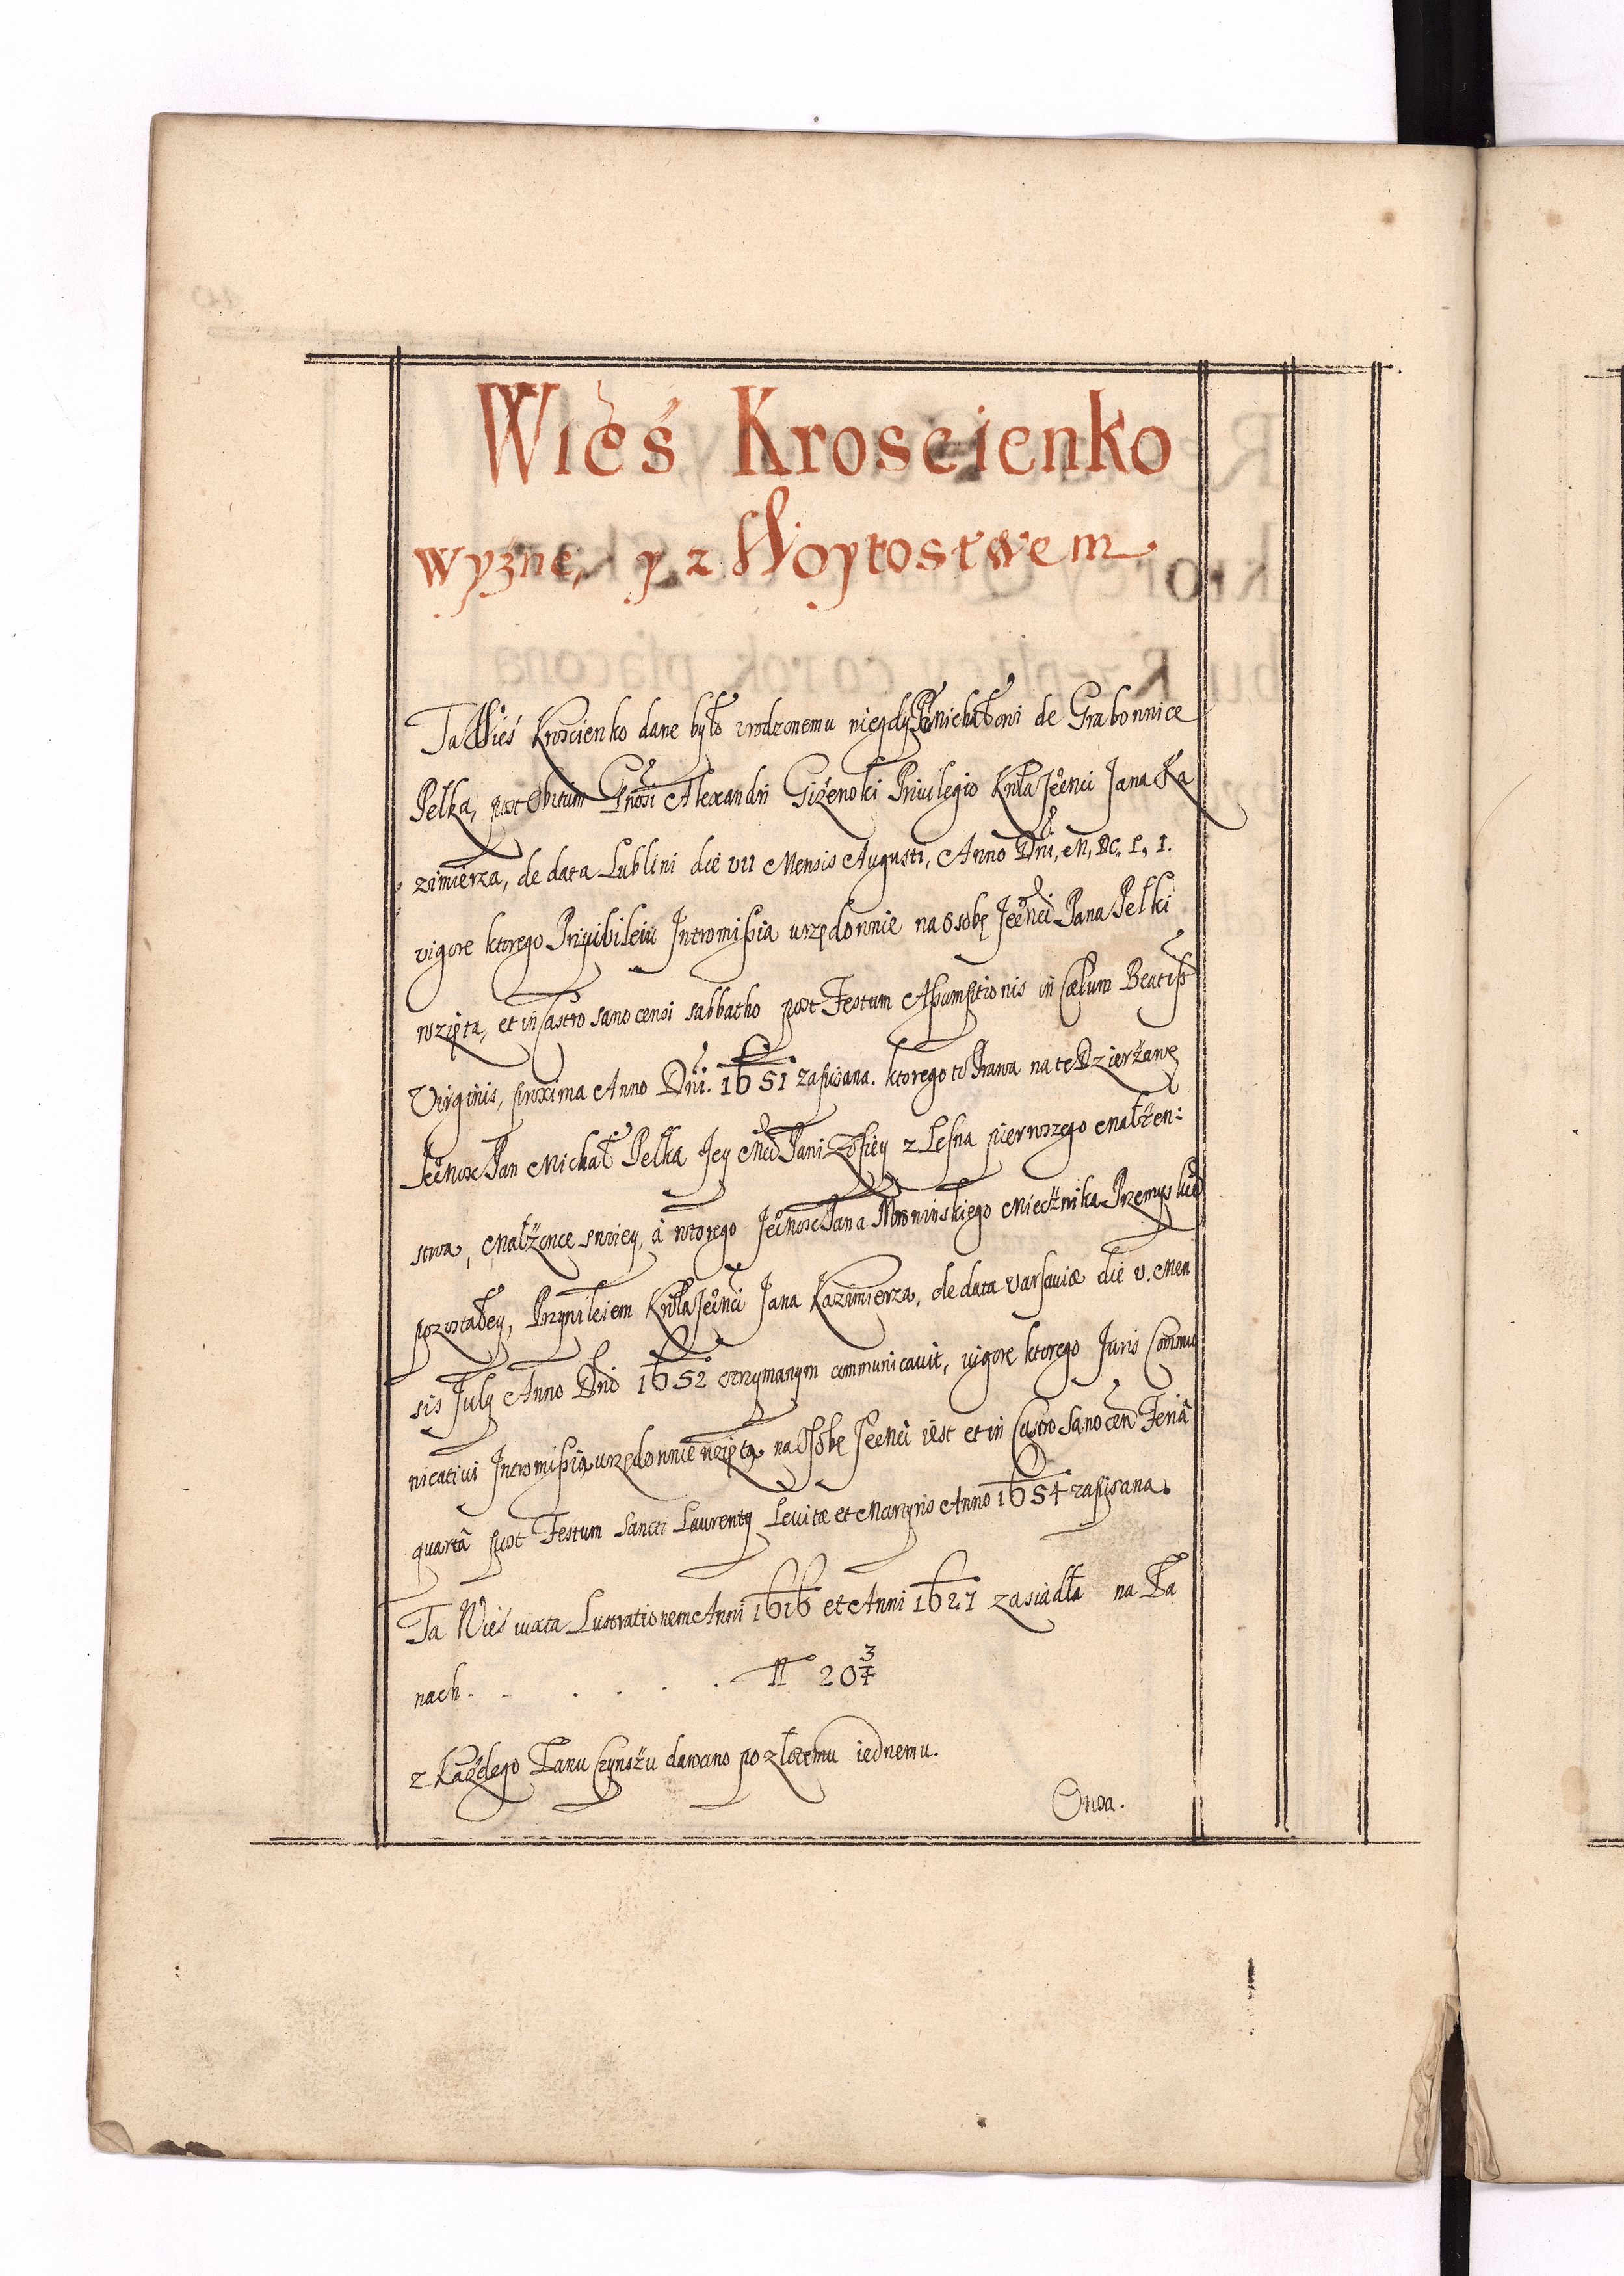 Wieś Kroscienko
wyżne, y z Woytostwem.
Ta Wieś Kroscienko dane było urodzonemu niegdy Michałowi de Grabownice
Pełka, post Obitum Gnosi Alexandri Giżenski Priuilegio Krola Je° Mci Jana Ka
zimierza, de data Lublini die VII Mensis Augusti, Anno Dni, M, DC, L, I.
vigore ktorego Priyibileiu Intromißia urzędownie na osobę Je° Mci Pana Pełki
wzięta, et in Castro Sanocensi sabbatho post Festum Aßumptionis in Cælum Beatiß
Virginis, proxima Anno Dni. 1651 zapisana. ktorego to Prawa na te Dzierżawę
Je° Mosc Pan Michał Pełka Jey Mci Pani Zofiey z Lesna pierwszego Małżen:
stwa, Małżonce swoiey, â wtorego Je° Mosc Pana Mroninskiego Miecżnika Przemyskie°
pozostałey, Przywileiem Krola Je° Mci Jana Kazimierza, de data Varsauiæ die v. Men
sis July Anno Dni 1652 otrzymanym communicauit, vigore ktorego Juris Commu
nicatiui Intromißia urzędownie wzięta na Osobę Je° Mci iest et in Castro Sanocen Feriâ
quartâ post Festum Sancti Laurenty Leuitæ et Martyris Anno 1654 zapisana.
Ta Wieś iuxta Lustrationem Anni 1616 et Anni 1627 zasiadła na Ła
nach. . . . . . N 20 3/4
z Każdego Łanu Czynszu dawano po złotemu iednemu.
Owsa.